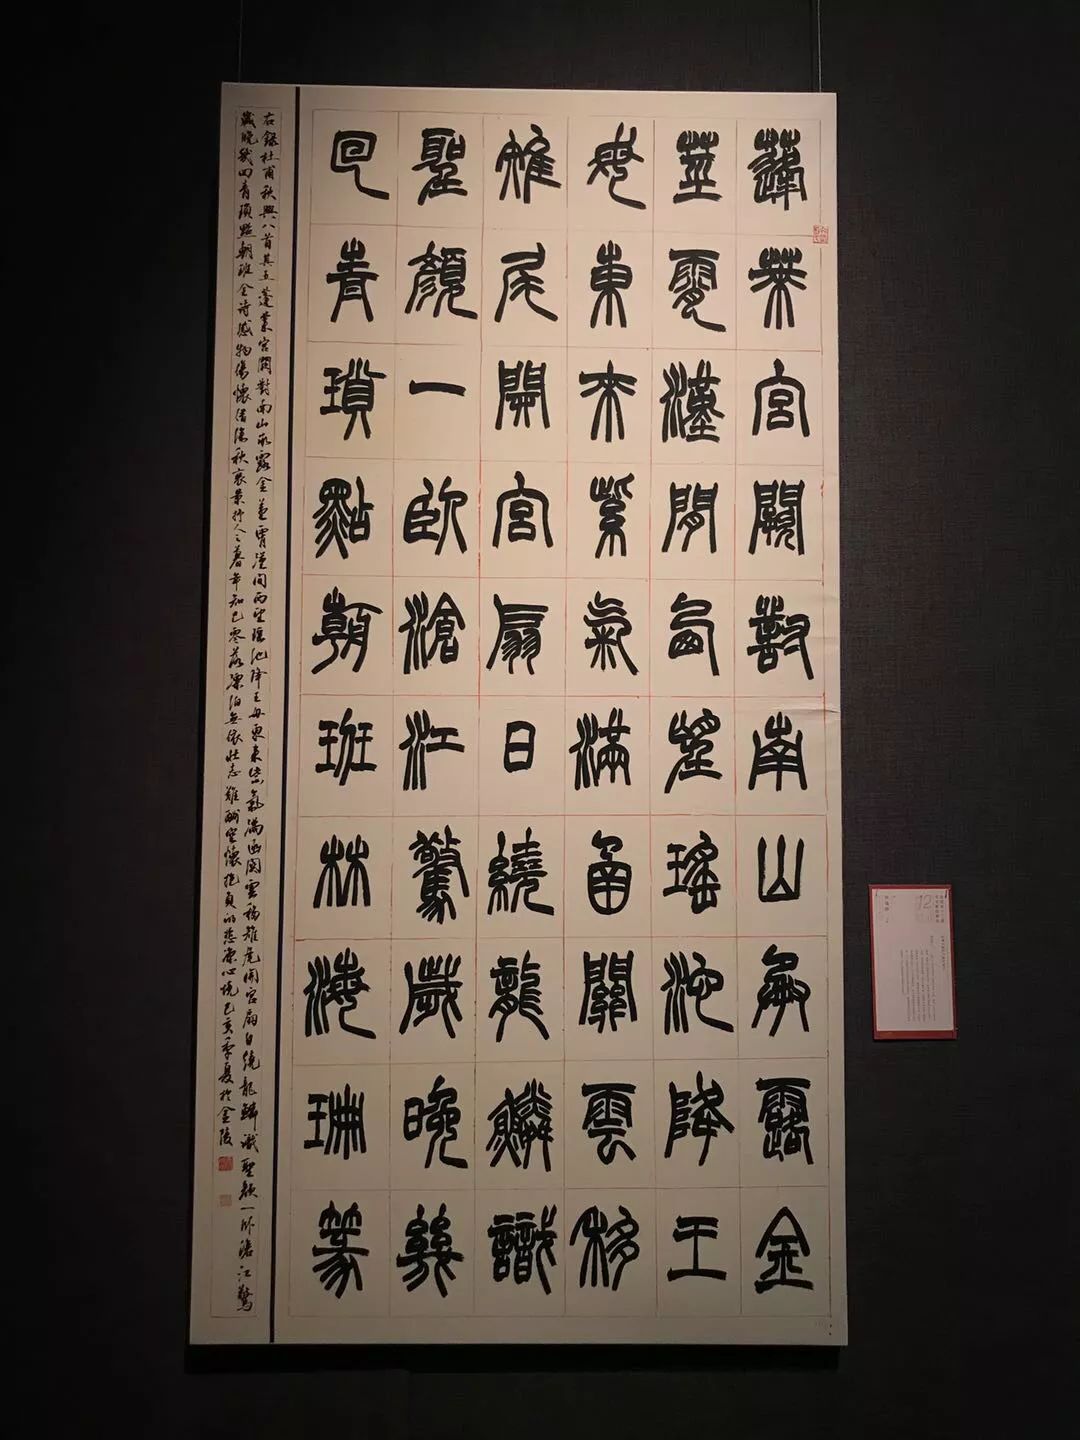 蓬萊宮闕對南山承露金
莖霄漢間西望瑤池降王
母東來紫氣滿函關雲移
雉尾開宮扇日繞龍鱗識
聖顏一臥滄江驚歲晚幾
回青瑣點朝班林海珊篆
右錄杜甫秋興八首其五蓬萊宮闕對南山承露金莖霄漢間西望瑤池降王母東來紫氣滿函關雲移雉尾開宮扇日繞龍鱗識聖顏一臥滄江驚
歲晚幾回青瑣點朝班全詩感物傷懷借深秋衰景抒人之暮年知己零落漂泊無依壯志難酬空懷抱負的悲涼心境己亥季夏於金陵
12